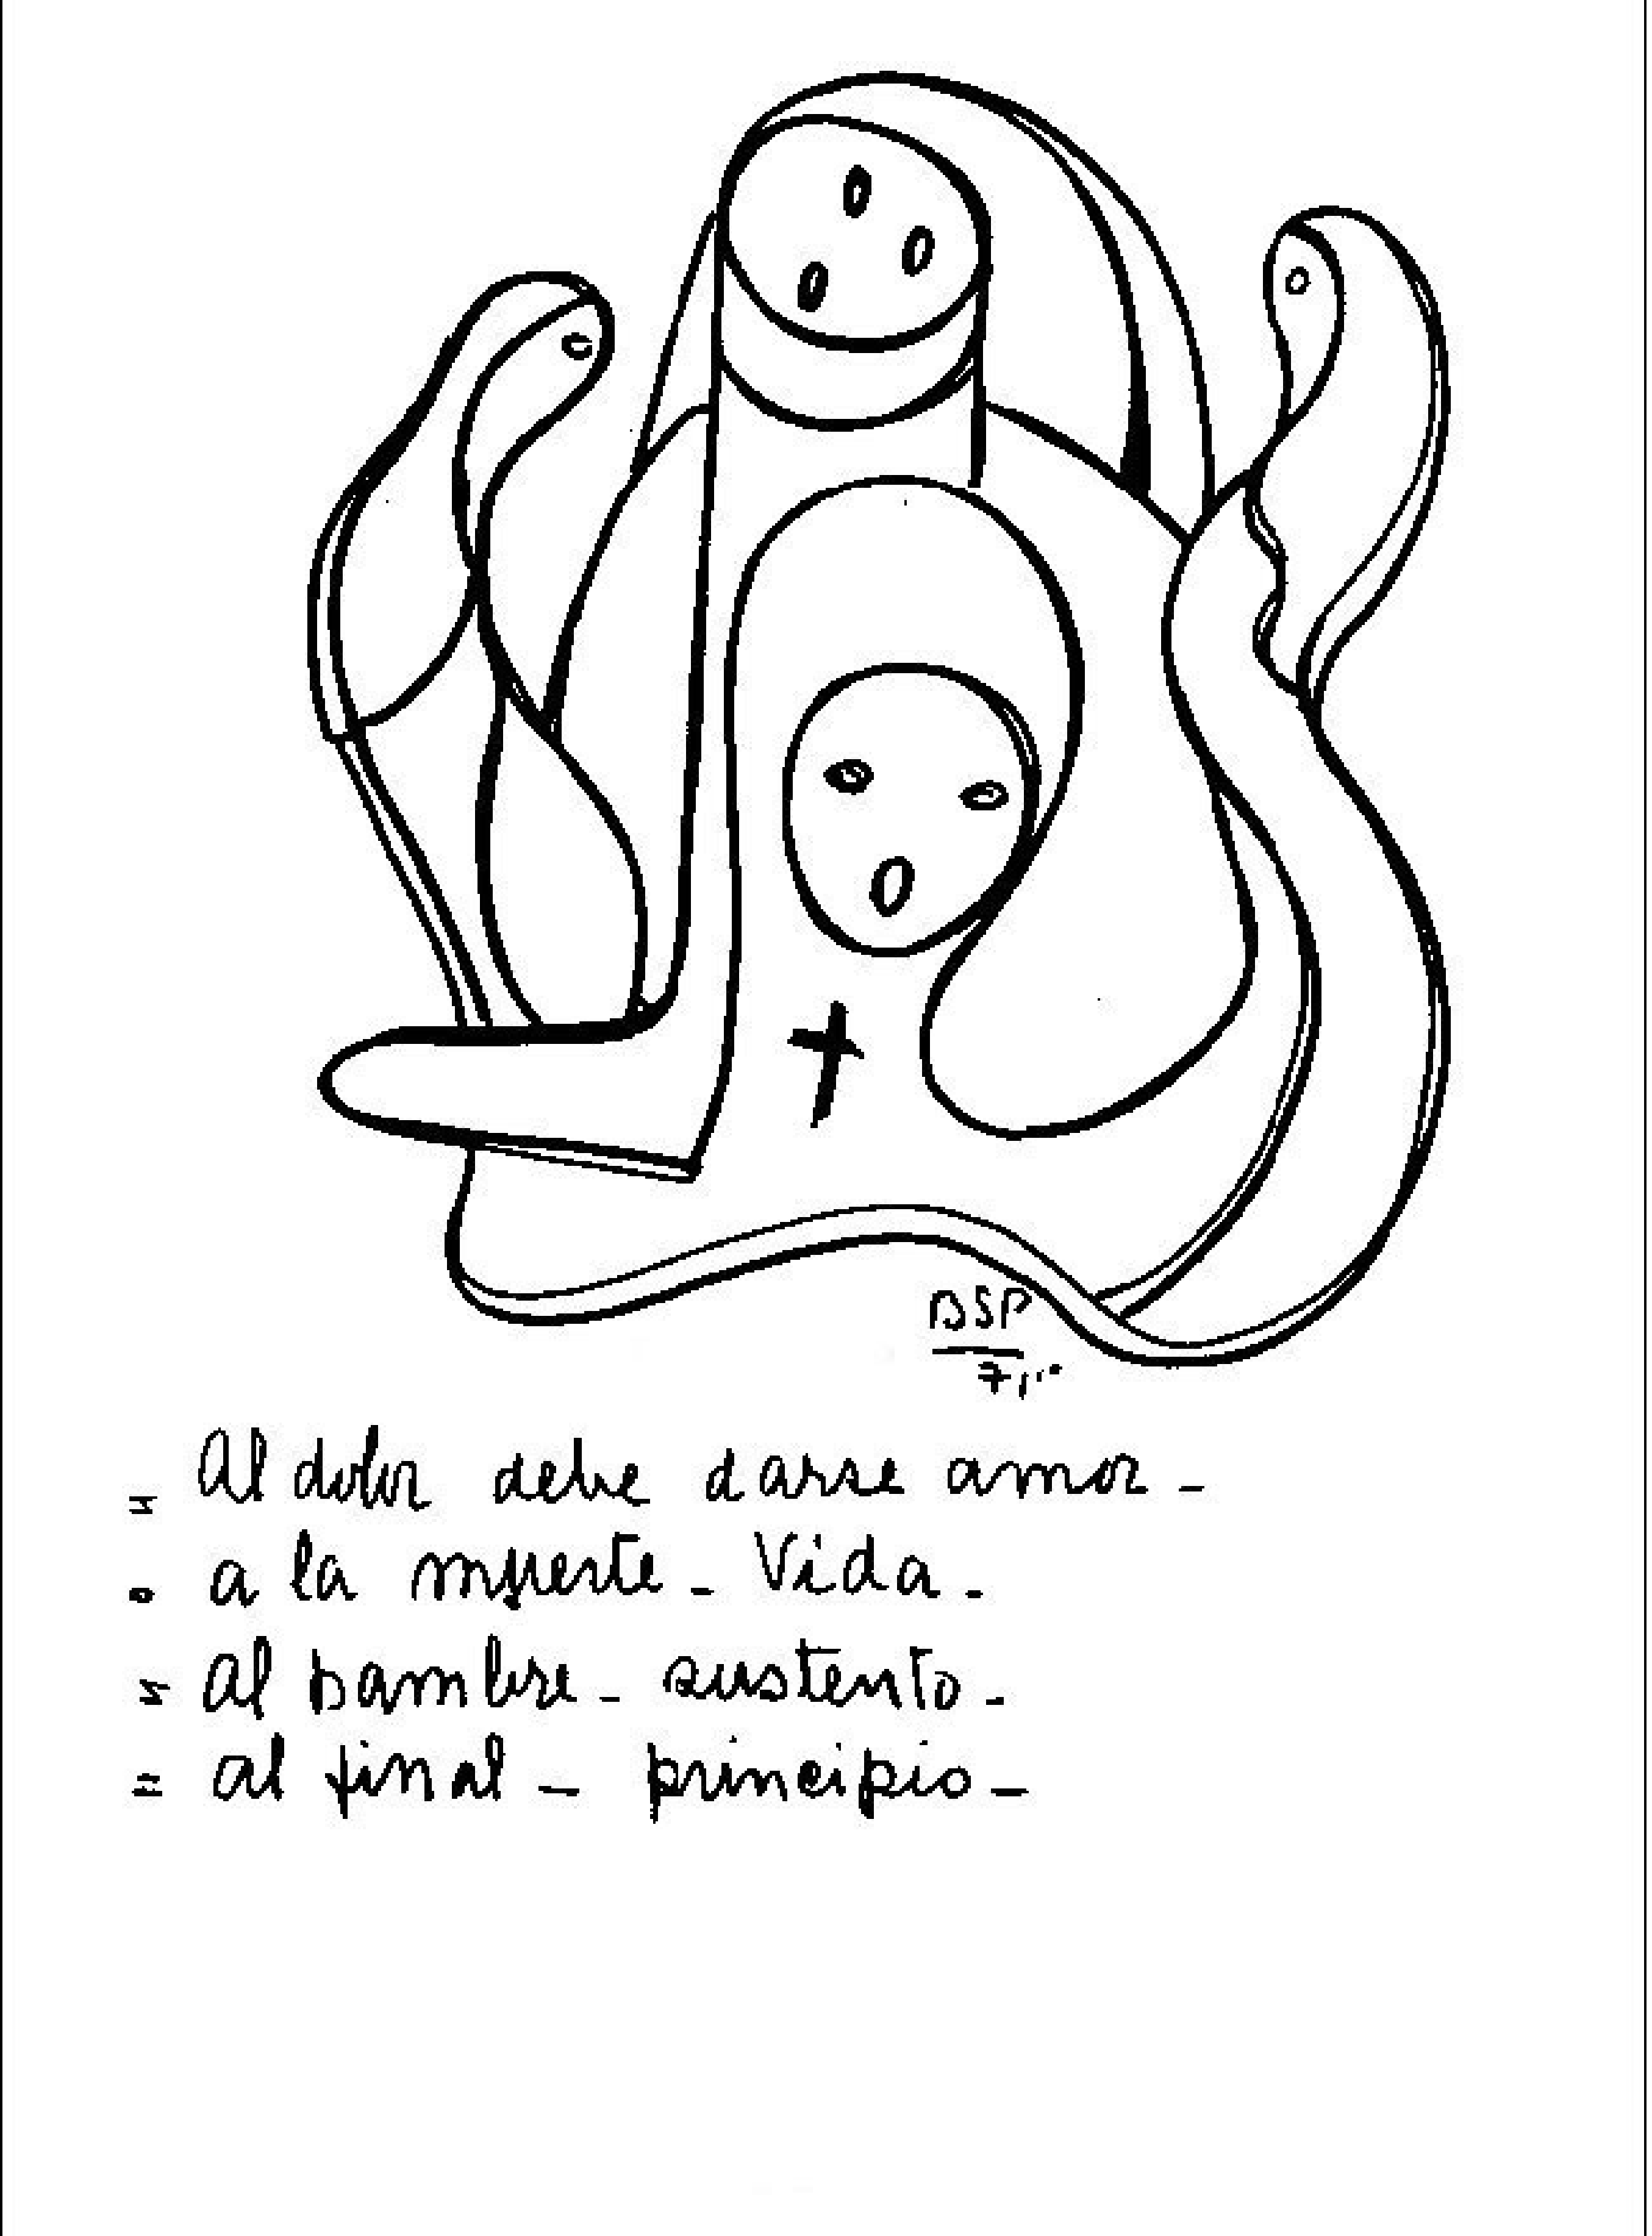 BSP
= Al dolor debe darse amor -
• a la muerte - Vida -
= al hambre - sustento -
= al final - principio -